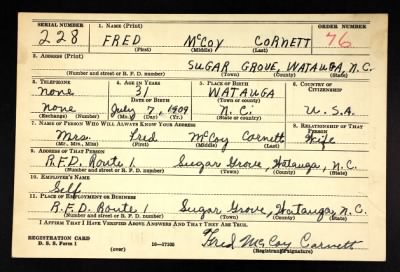 SERIAL NUMBER 1. NAME (Print) ORDER NUMBER
228 FRED McCoy CORNETT 76
(First) (Middle) (Last)
2. ADDRESS (Print)
SUGAR GROVE, WATAUGA, N.C.
(Number and street or R. F. D. number) (Town) (County) (State)
3. TELEPHONE 4. AGE IN YEARS 5. PLACE OF BIRTH 6. COUNTRY OF CITIZENSHIP
none 31 WATAUGA
DATE OF BIRTH (Town or county)
none July 7, 1909 N.C. U.S.A.
(Exchange) (Number) (Mo.) (Day) (Yr.) (State or country)
7. NAME OF PERSON WHO WILL ALWAYS KNOW YOUR ADDRESS 8. RELATIONSHIP OF THAT PERSON
Mrs. Fred McCoy Cornett Wife
(Mr., Mrs., Miss) (First) (Middle) (Last)
9. ADDRESS OF THAT PERSON
R.F.D. Route 1 Sugar Grove, Watauga, N.C.
(Number and street or R. F. D. number) (Town) (County) (State)
10. EMPLOYER'S NAME
Self
11. PLACE OF EMPLOYMENT OR BUSINESS
R.F.D. Route 1 Sugar Grove, Watauga, N.C.
(Number and street or R. F. D. number) (Town) (County) (State)
I AFFIRM THAT I HAVE VERIFIED ABOVE ANSWERS AND THAT THEY ARE TRUE.
REGISTRATION CARD
D. S. S. Form 1 (over) 16—17105 Fred McCoy Cornett
(Registrant's signature)